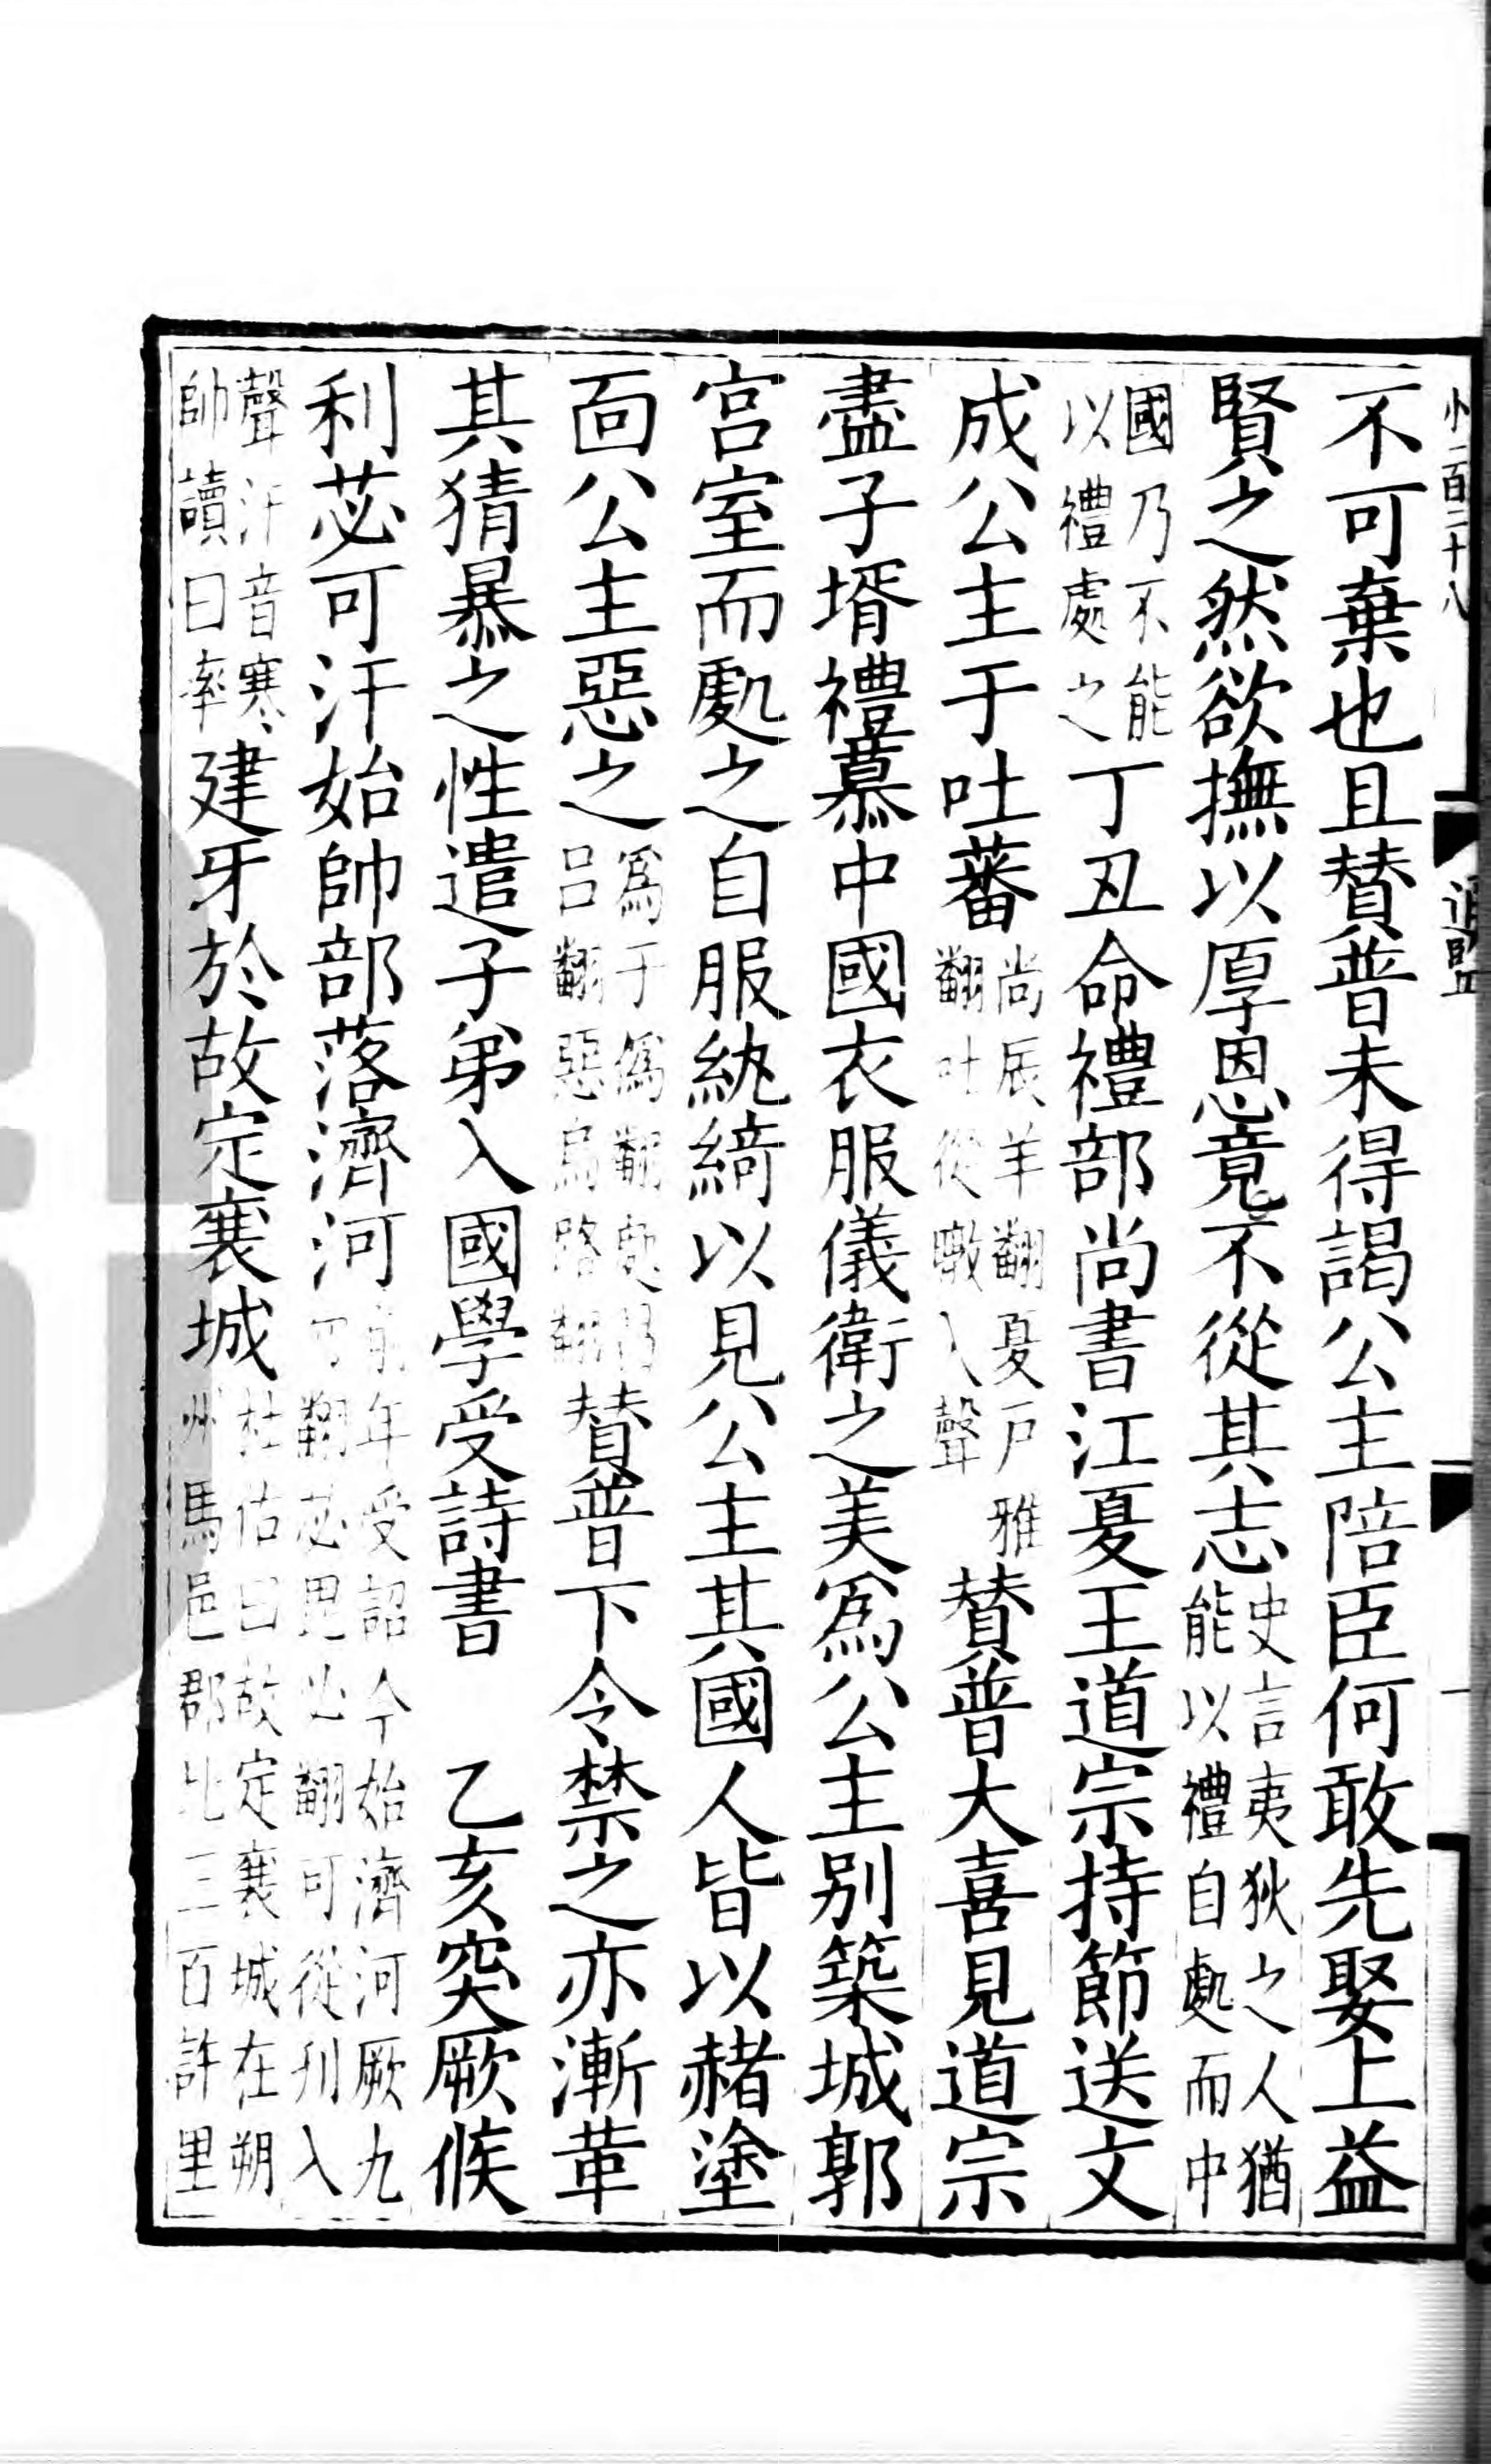 小二百二十八
通鑑
不可棄也且賛普未得謁公主陪臣何敢先娶上益
賢之然欲撫以厚恩竟不從其志史言夷狄之人猶能以禮自處而中
國乃不能以禮處之丁丑命禮部尚書江夏王道宗持節送文
成公主于吐蕃尚辰羊翻夏戶雅翻吐從暾入聲賛普大喜見道宗
盡子壻禮慕中國衣服儀衛之美爲公主别築城郭
宫室而處之自服紈綺以見公主其國人皆以赭塗
面公主惡之爲于僞翻處昌呂翻惡烏路翻賛普下令禁之亦漸革
其猜暴之性遣子弟入國學受詩書 乙亥突厥俟
利苾可汗始帥部落濟河前年受詔今始濟河厥九勿翻苾毘必翻可從刋入
聲汗音寒帥讀曰率建牙於故定襄城杜佑曰故定襄城在朔州馬邑郡北三百許里